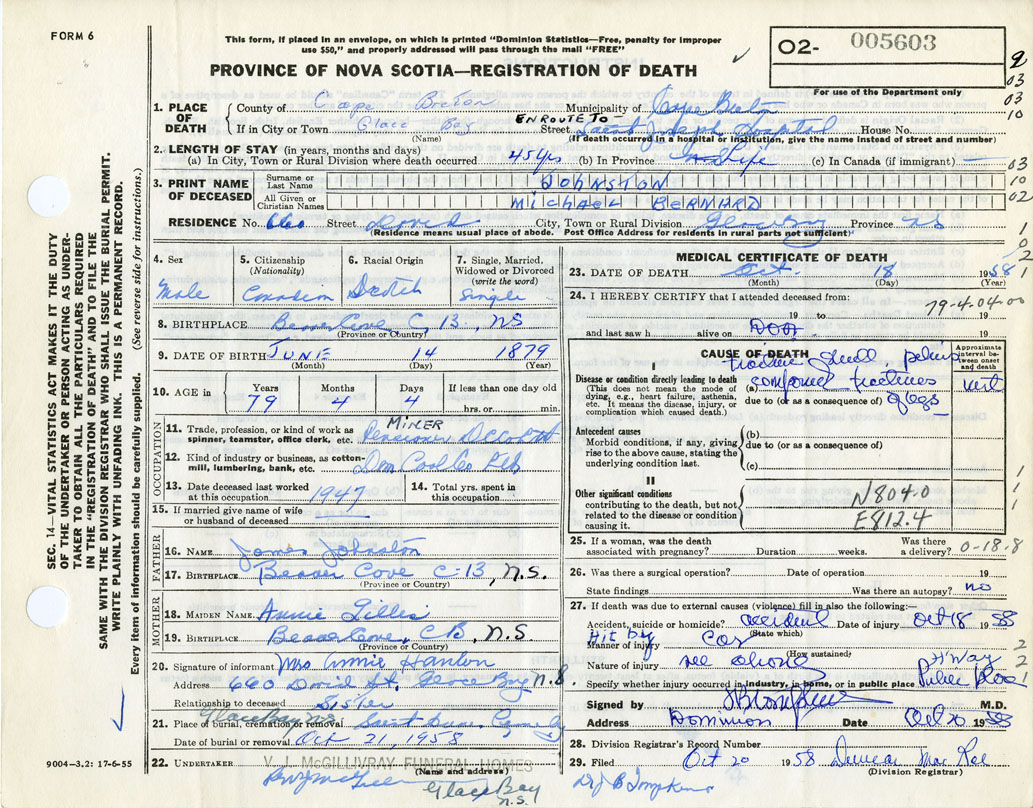 FORM 6
This form, if placed in an envelope, on which is printed "Dominion Statistics—Free, penalty for improper
use $50," and properly addressed will pass through the mail "FREE"
PROVINCE OF NOVA SCOTIA—REGISTRATION OF DEATH
O2- 005603
For use of the Department only
1. PLACE OF DEATH
County of Cape Breton Municipality of Cape Breton
If in City or Town Glace Bay (Name) ENROUTE TO— Street Saint Joseph Hospital House No.
(If death occurred in a hospital or institution, give the name instead of street and number)
2. LENGTH OF STAY (in years, months and days)
(a) In City, Town or Rural Division where death occurred 45 yrs (b) In Province Life (c) In Canada (if immigrant) —
3. PRINT NAME OF DECEASED
Surname or Last Name JOHNSTON
All Given or Christian Names MICHAEL BERNARD
RESIDENCE No. 660 Street David City, Town or Rural Division Glace Bay Province NS
(Residence means usual place of abode. Post Office Address for residents in rural parts not sufficient)
4. Sex Male
5. Citizenship (Nationality) Canadian
6. Racial Origin Scotch
7. Single, Married, Widowed or Divorced (write the word) Single
8. BIRTHPLACE Beaver Cove C.B., NS
(Province or Country)
9. DATE OF BIRTH JUNE 14 1879
(Month) (Day) (Year)
10. AGE in Years 79 Months 4 Days 4 If less than one day old hrs. or min.
OCCUPATION
11. Trade, profession, or kind of work as spinner, teamster, office clerk, etc. MINER Pensioner
12. Kind of industry or business, as cotton-mill, lumbering, bank, etc. Dom Coal Co Ltd
13. Date deceased last worked at this occupation 1947
14. Total yrs. spent in this occupation
15. If married give name of wife or husband of deceased
FATHER
16. NAME James Johnston
17. BIRTHPLACE Beaver Cove C.B, N.S.
(Province or Country)
MOTHER
18. MAIDEN NAME Annie Gillis
19. BIRTHPLACE Beaver Cove, CB, N.S
(Province or Country)
20. Signature of informant Mrs Annie Hanlon
Address 660 David St. Glace Bay N.S.
Relationship to deceased Sister
Glace Bay N.S.
21. Place of burial, cremation or removal Saint
Date of burial or removal Oct 21, 1958
22. UNDERTAKER V. J. McGILLIVRAY FUNERAL HOMES
(Name and address)
Glace Bay
N.S.
MEDICAL CERTIFICATE OF DEATH
23. DATE OF DEATH Oct. 18 1958
(Month) (Day) (Year)
24. I HEREBY CERTIFY that I attended deceased from:
79-4-04-00
19 to 19
and last saw h alive on DOA 19
CAUSE OF DEATH
Approximate interval between onset and death
I
fracture skull, pelvis
Disease or condition directly leading to death (a) compound fractures
(This does not mean the mode of dying, e.g., heart failure, asthenia, etc. It means the disease, injury, or complication which caused death.)
due to (or as a consequence of) of legs
Antecedent causes
Morbid conditions, if any, giving rise to the above cause, stating the underlying condition last.
(b)
due to (or as a consequence of)
(c)
II
Other significant conditions
contributing to the death, but not related to the disease or condition causing it.
N804.0
E812.4
25. If a woman, was the death associated with pregnancy? Duration weeks. Was there a delivery?
0-18-8
26. Was there a surgical operation? Date of operation 19
State findings Was there an autopsy? no
27. If death was due to external causes (violence) fill in also the following:—
Accident, suicide or homicide? accident (State which) Date of injury Oct 18 1958
Manner of injury Hit by Car (How sustained)
Nature of injury see above
H'Way
Specify whether injury occurred in industry, in home, or in public place Public Place
Signed by M.D.
Address Dominion Date Oct 20 1958
28. Division Registrar's Record Number
29. Filed Oct 20 1958 Duncan Mac Rae
(Division Registrar)
Dr J B Tompkins
SEC. 14—VITAL STATISTICS ACT MAKES IT THE DUTY
OF THE UNDERTAKER OR PERSON ACTING AS UNDER-
TAKER TO OBTAIN ALL THE PARTICULARS REQUIRED
IN THE "REGISTRATION OF DEATH" AND TO FILE THE
SAME WITH THE DIVISION REGISTRAR WHO SHALL ISSUE THE BURIAL PERMIT.
WRITE PLAINLY WITH UNFADING INK. THIS IS A PERMANENT RECORD.
Every item of information should be carefully supplied. (See reverse side for instructions.)
9004—3.2: 17-6-55